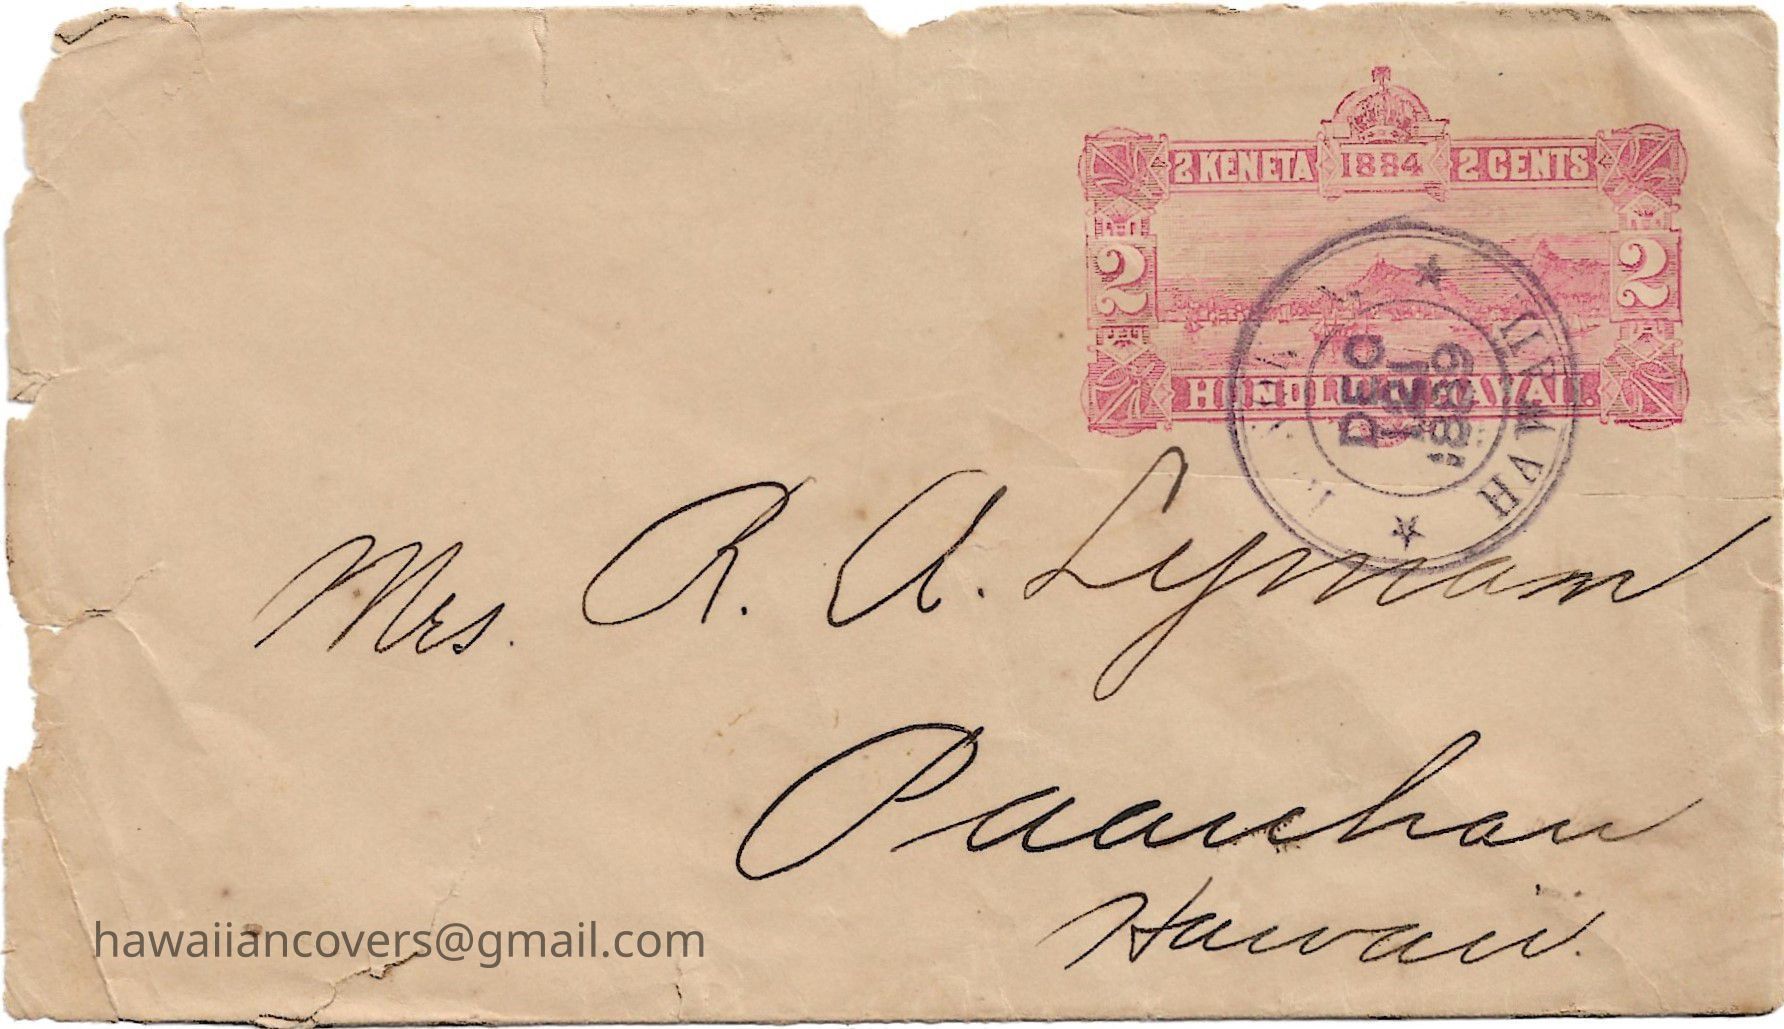 2 KENETA 1884 2 CENTS
2 2
HONOLULU HAWAII.
HAWAII
DEC
121
1889
Mrs. R. A. Lyman
Paauhau
Hawaii.
hawaiiancovers@gmail.com